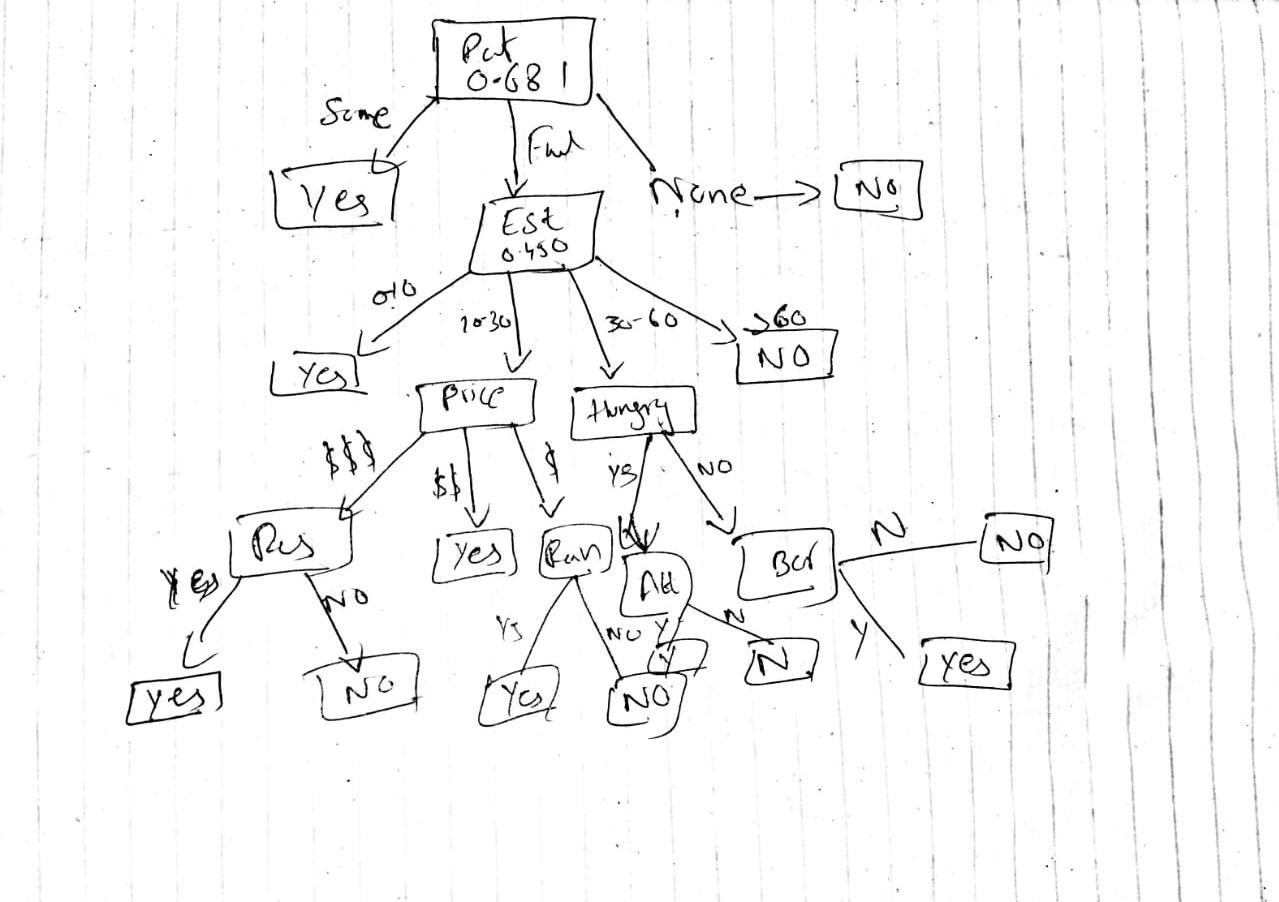 Pat
0.681
Some
Full
None
NO
Yes
Est
0.450
0-10
10-30
30-60
>60
Yes
NO
Price
Hungry
$$$
$$
$
Yes
NO
Res
Yes
Ran
Alt
Bar
N
NO
Yes
NO
Ys
NO
Y
N
Y
Yes
NO
Yes
NO
Y
N
Yes